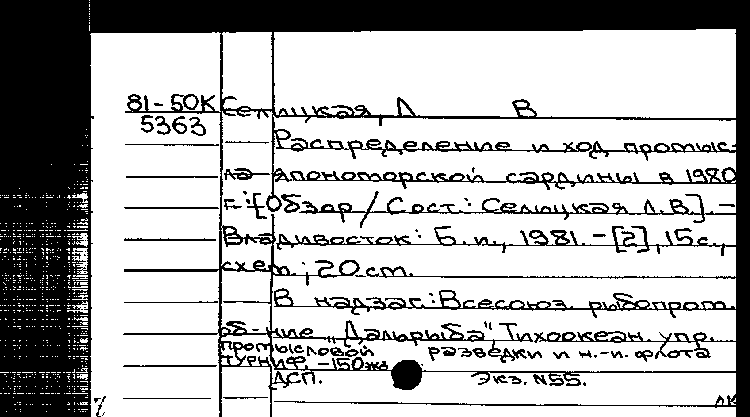 81-50К Селицкая, Л В
5363
Распределение и ход промыс-
ла япономорской сардины в 1980
г.: [Обзор / Сост.: Селицкая Л.В.]. -
Владивосток: Б.и., 1981. - [2], 15 с.,
схем.; 20 см.
В надзаг.: Всесоюз. рыбопром.
об-ние „Дальрыба", Тихоокеан. упр.
промысловой разведки и н.-и. флота
ТУРНИФ. - 150 экз
ДСП. Экз. N55.